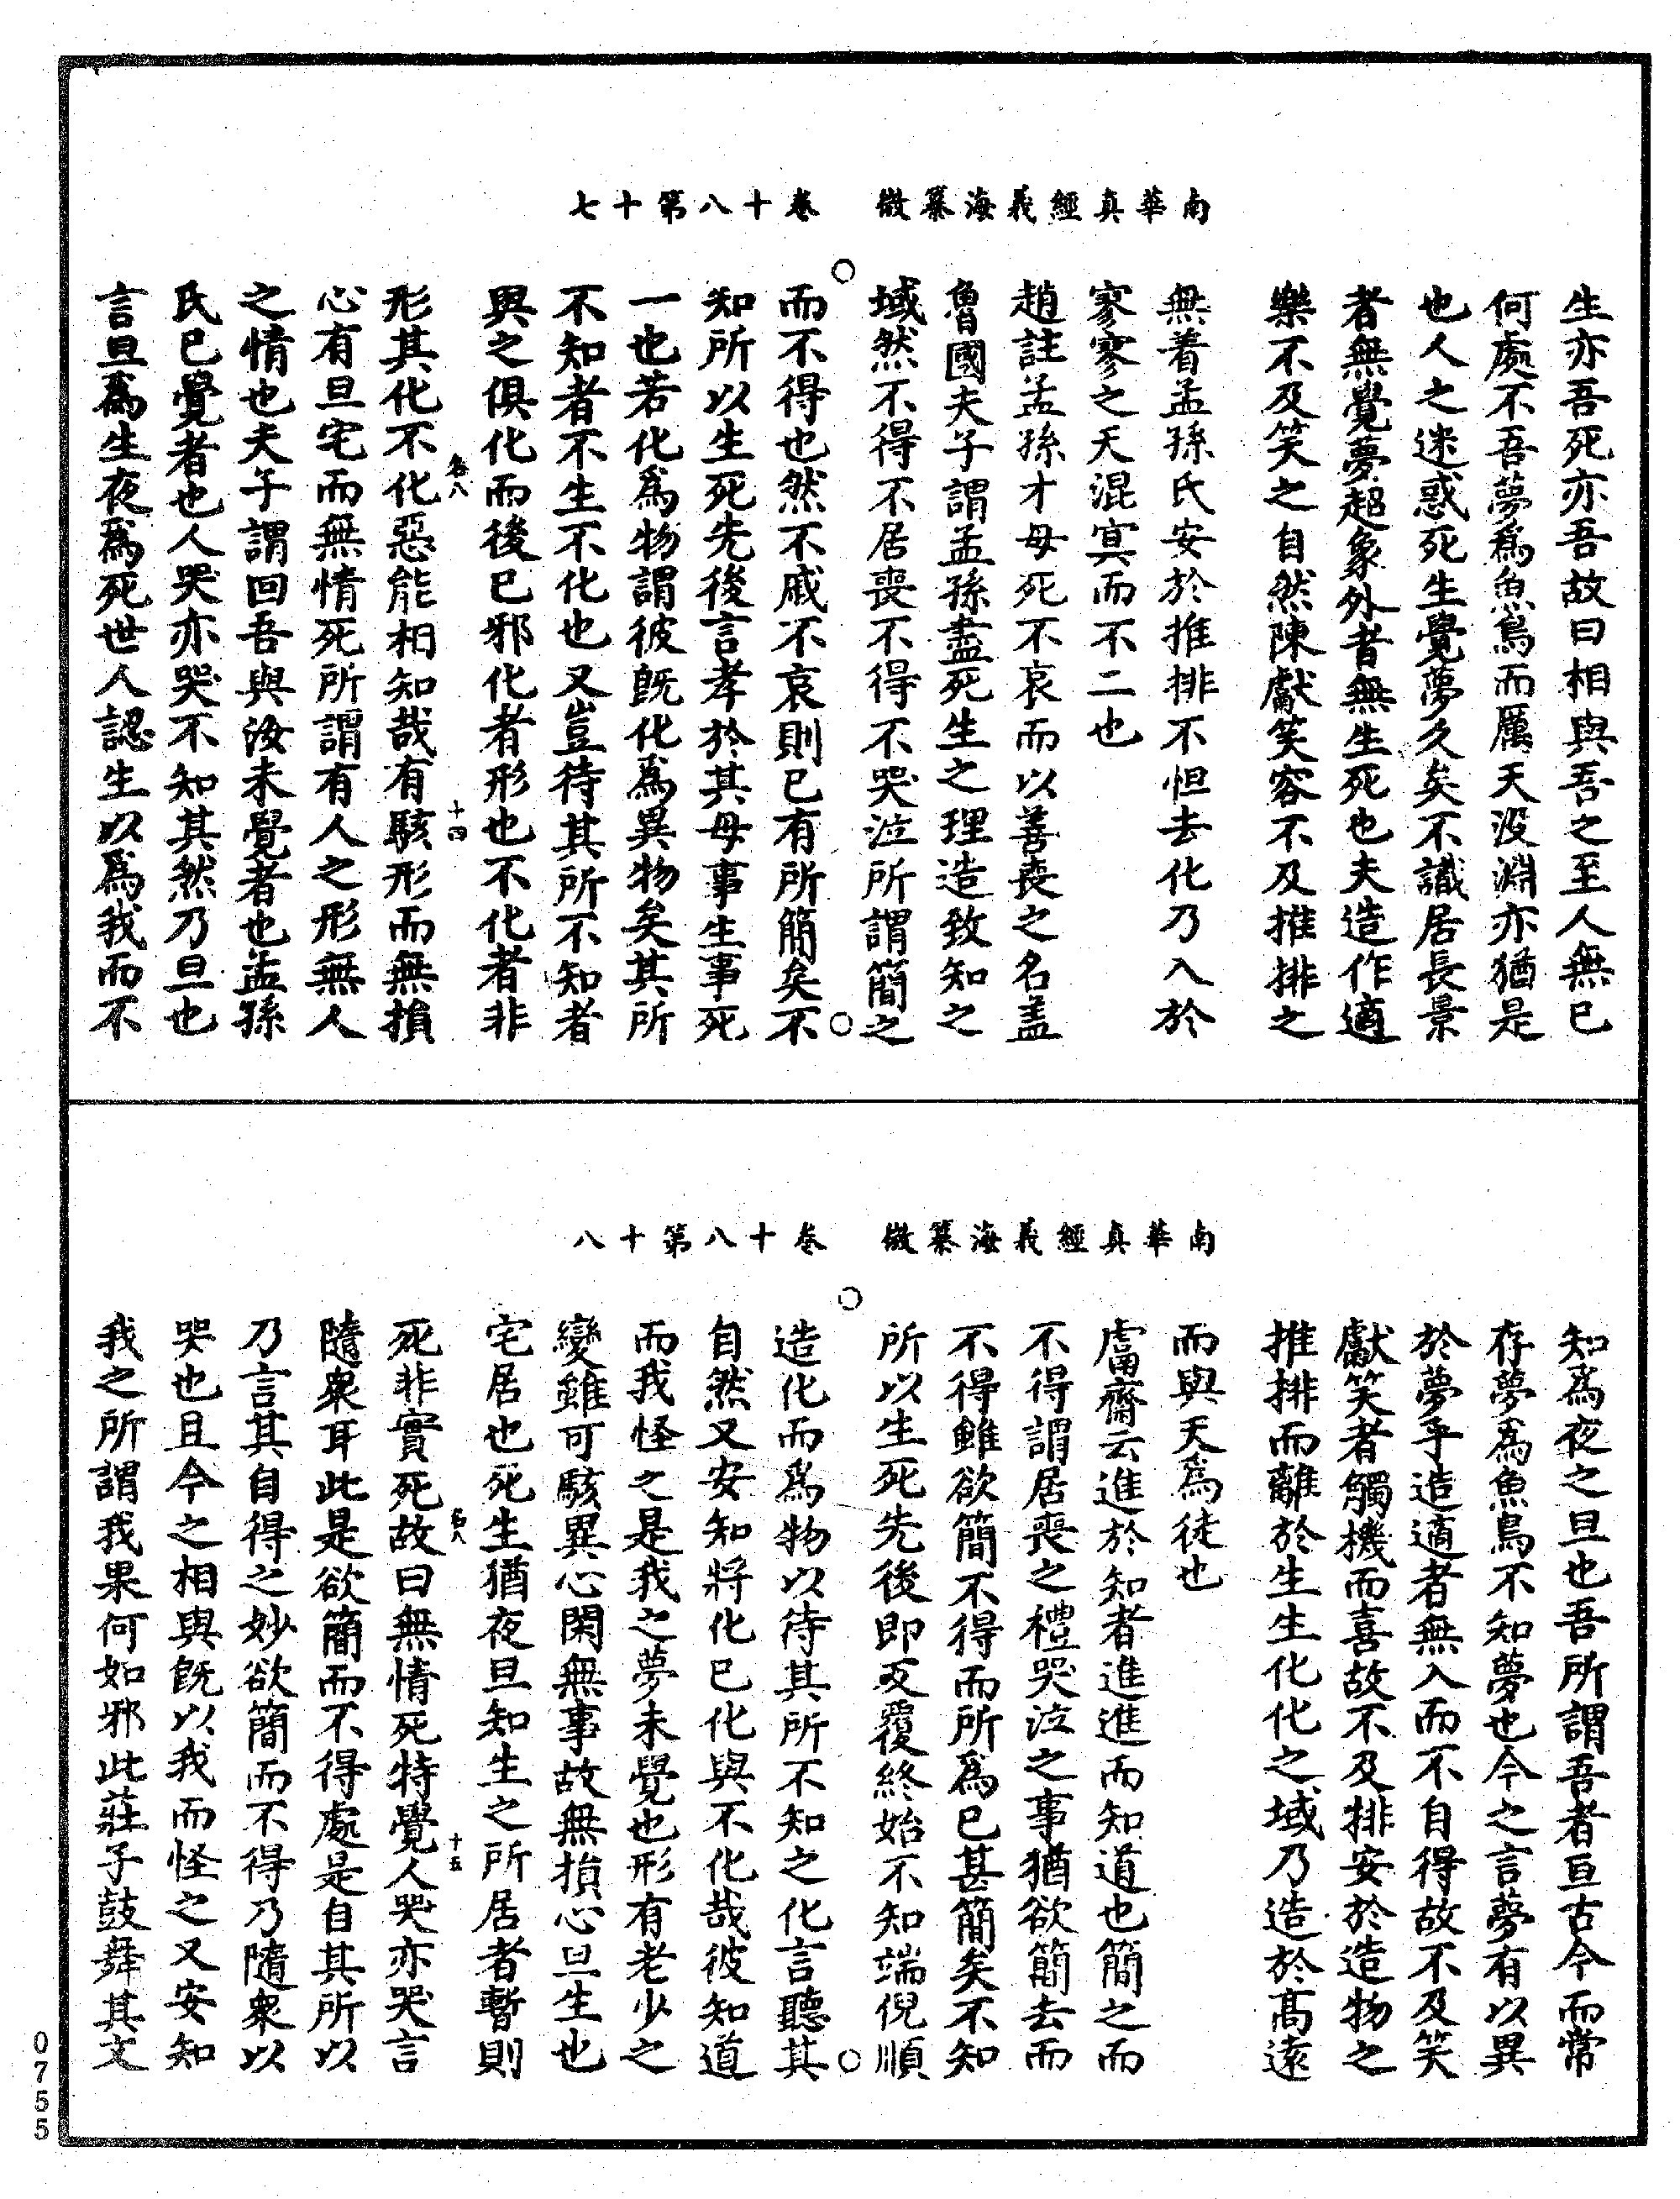 南華真經義海纂微　卷十八第十七
生亦吾死亦吾故曰相與吾之至人無已
何處不吾夢爲魚鳥而厲天没淵亦猶是
也人之迷惑死生覺夢久矣不識居長景
者無覺夢超象外者無生死也夫造作適
樂不及笑之自然陳獻笑容不及推排之
無着孟孫氏安於推排不怛去化乃入於
寥寥之天混㝠而不二也
趙註孟孫才母死不哀而以善喪之名盖
魯國夫子謂孟孫盡死生之理造致知之
域然不得不居喪不得不哭泣所謂簡之
而不得也然不戚不哀則已有所簡矣不
知所以生死先後言孝於其母事生事死
一也若化爲物謂彼旣化爲異物矣其所
不知者不生不化也又豈待其所不知者
與之俱化而後已邪化者形也不化者非
形其化不化惡能相知哉有駭形而無損
心有旦宅而無情死所謂有人之形無人
之情也夫子謂回吾與汝未覺者也孟孫
氏已覺者也人哭亦哭不知其然乃旦也
言旦爲生夜爲死世人認生以爲我而不
名八
十四
南華真經義海纂微　卷十八第十八
知爲夜之旦也吾所謂吾者亘古今而常
存夢爲魚鳥不知夢也今之言夢有以異
於夢乎造適者無入而不自得故不及笑
獻笑者觸機而喜故不及排安於造物之
推排而離於生生化化之域乃造於高遠
而與天爲徒也
鬳齋云進於知者進進而知道也簡之而
不得謂居喪之禮哭泣之事猶欲簡去而
不得雖欲簡不得而所爲已甚簡矣不知
所以生死先後即反覆終始不知端倪順
造化而爲物以待其所不知之化言聽其
自然又安知將化已化與不化哉彼知道
而我怪之是我之夢未覺也形有老少之
變雖可駭異心閑無事故無損心旦生也
宅居也死生猶夜旦知生之所居者暫則
死非實死故曰無情死特覺人哭亦哭言
隨衆耳此是欲簡而不得處是自其所以
乃言其自得之妙欲簡而不得乃隨衆以
哭也且今之相與旣以我而怪之又安知
我之所謂我果何如邪此莊子鼓舞其文
名八
十五
0755